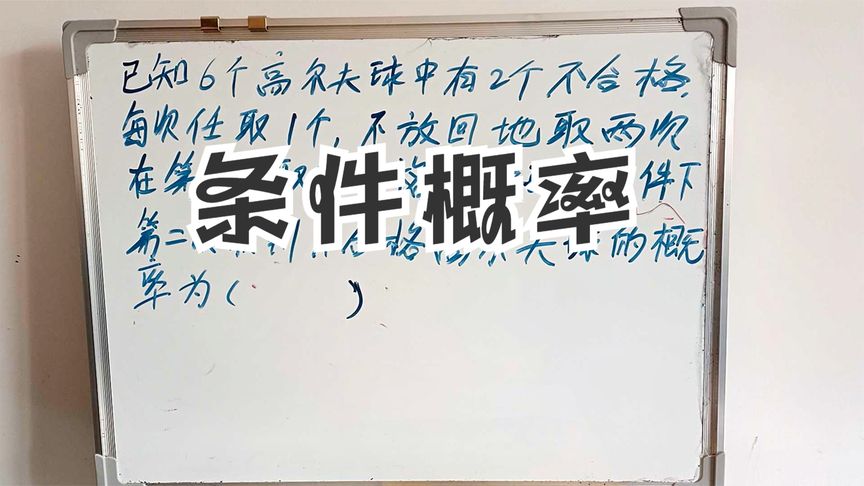 已知6个高尔夫球中有2个不合格,
每次任取1个,不放回地取两次
在第
件下
条件概率
第二 格 夫球的概
率为( )